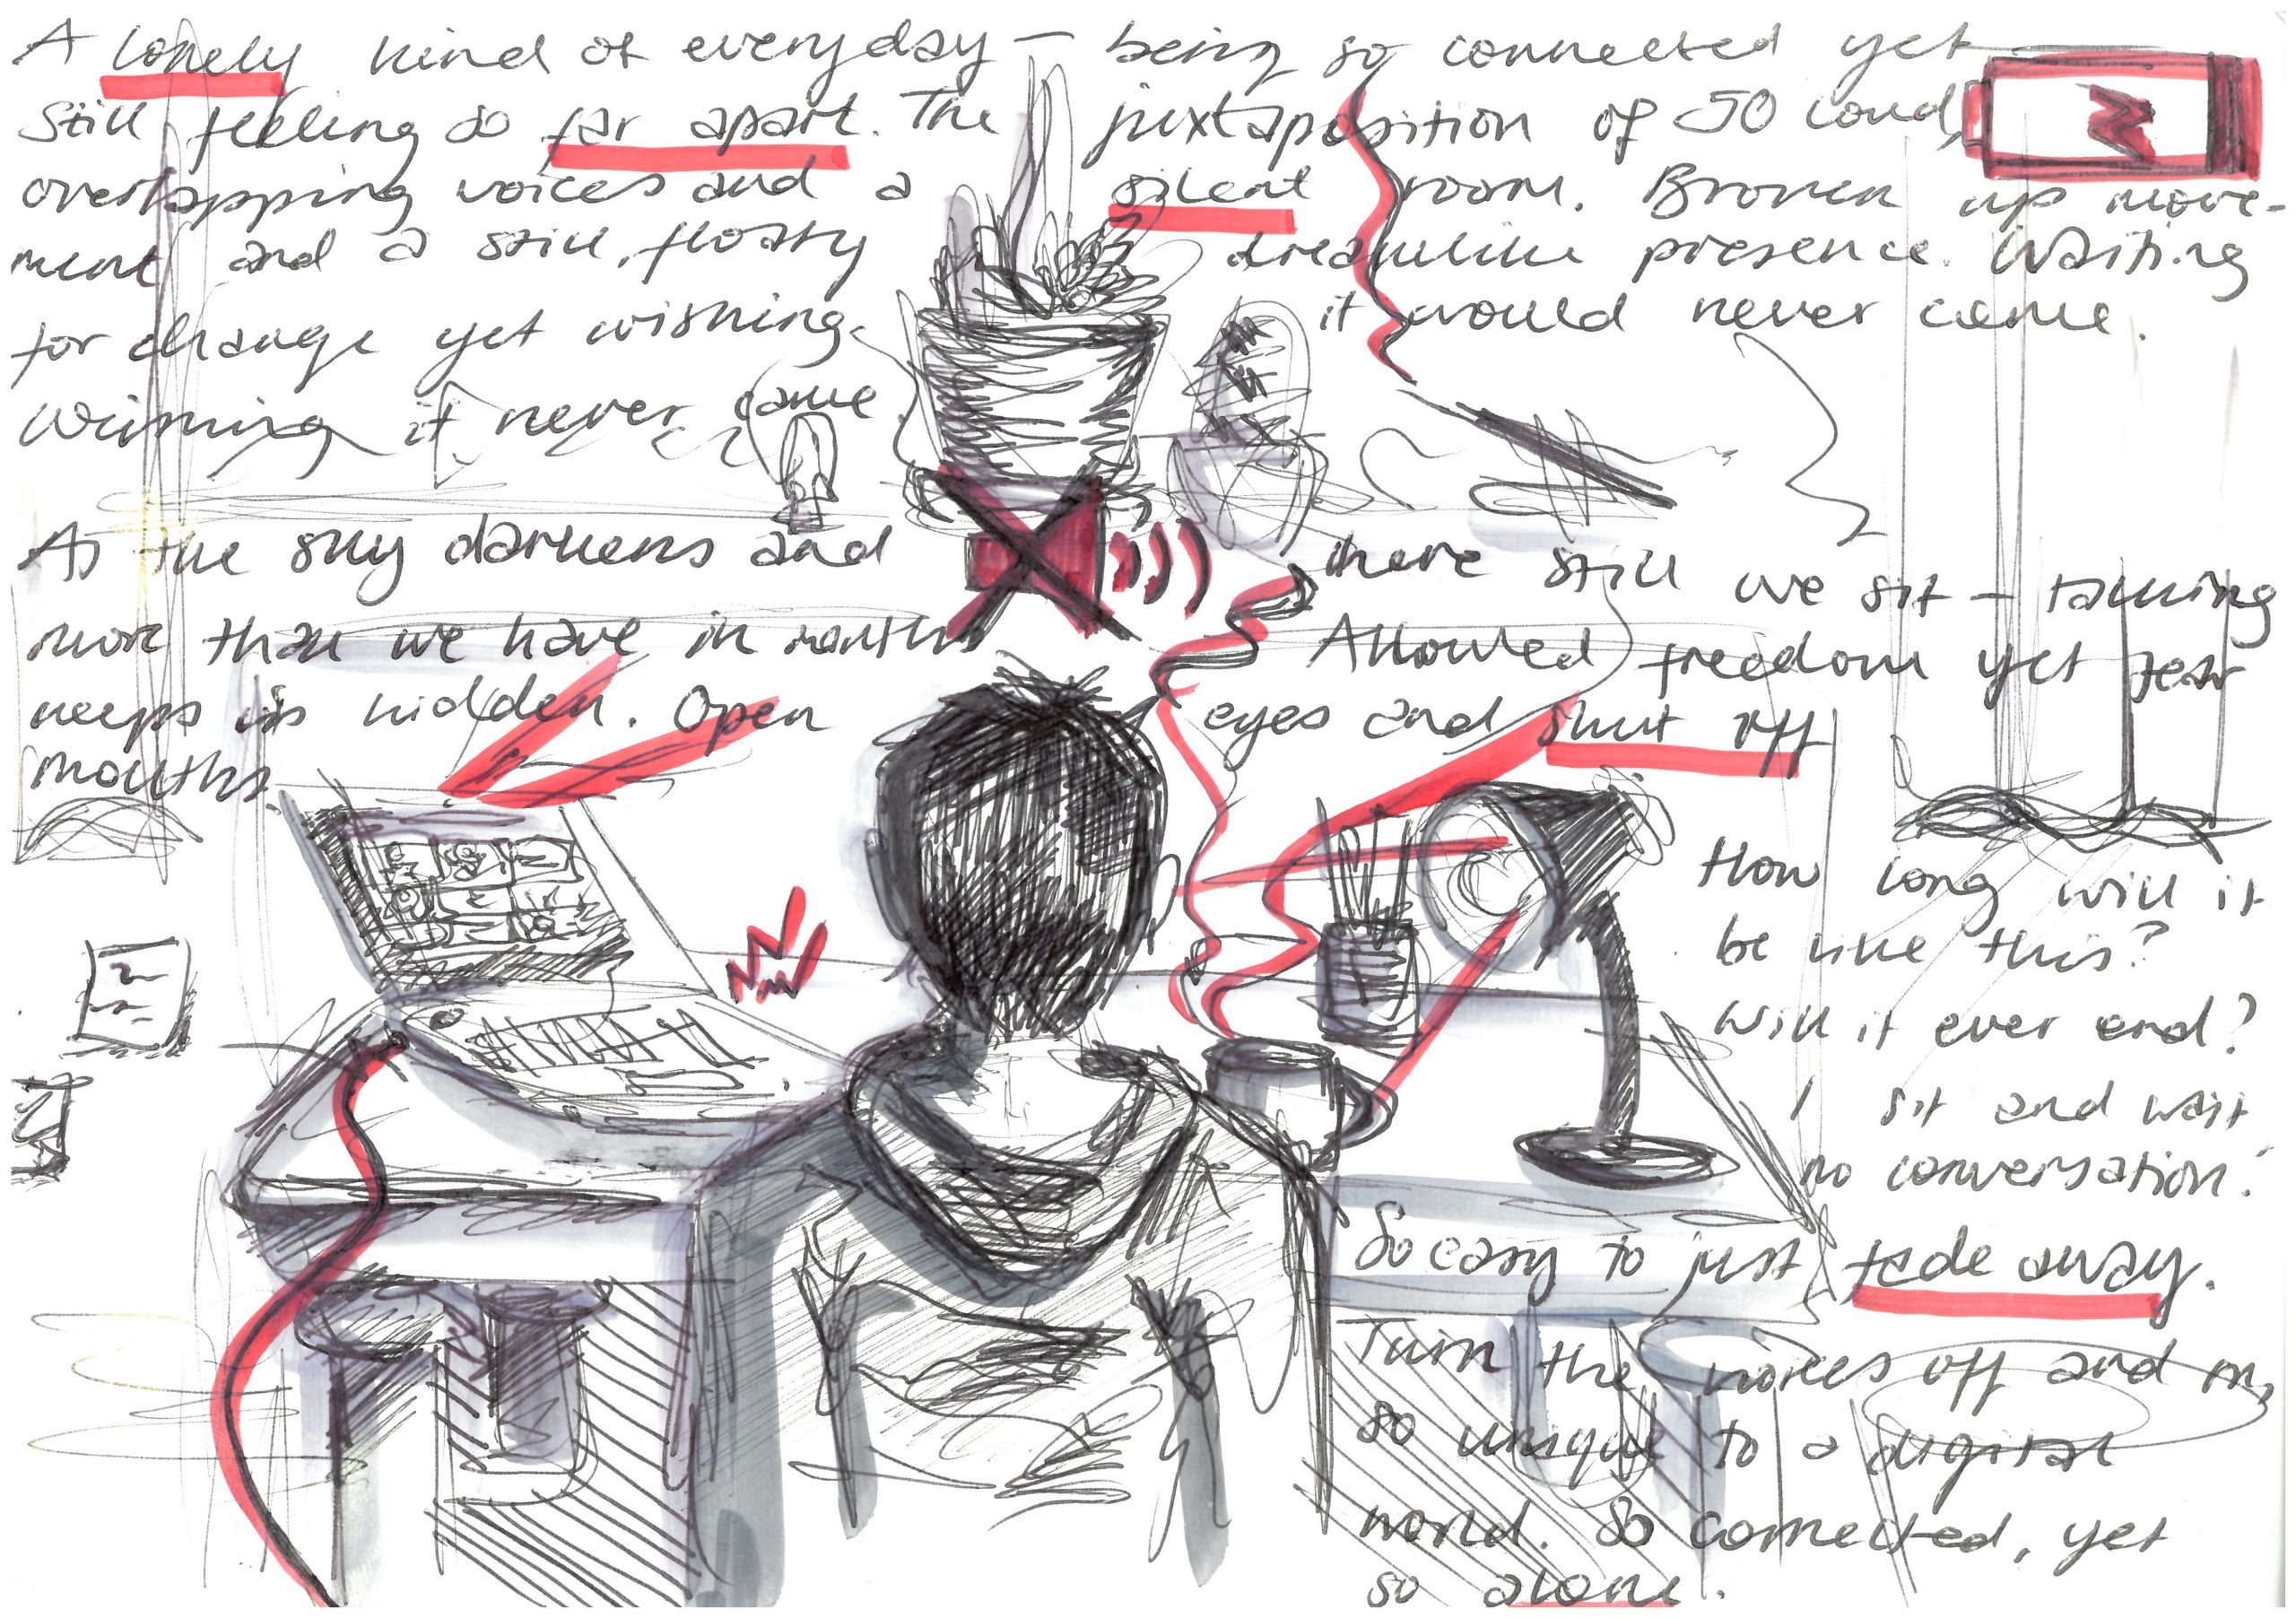 A lonely kind of everyday – being so connected yet
still feeling so far apart. The juxtaposition of SO loud,
overlapping voices and a silent room. Broken up move-
ment and a still, floaty dreamlike presence. Waiting
for change yet wishing it would never come.
Wishing it never came.
As the sky darkens and there still we sit – talking
more than we have in months Allowed freedom yet fear
keeps us hidden. Open eyes and shut off
mouths.
How long will it
be like this?
Will it ever end?
I sit and wait
no conversation.
So easy to just fade away.
Turn the voices off and on,
so unique to a digital
world. So connected, yet
so alone.